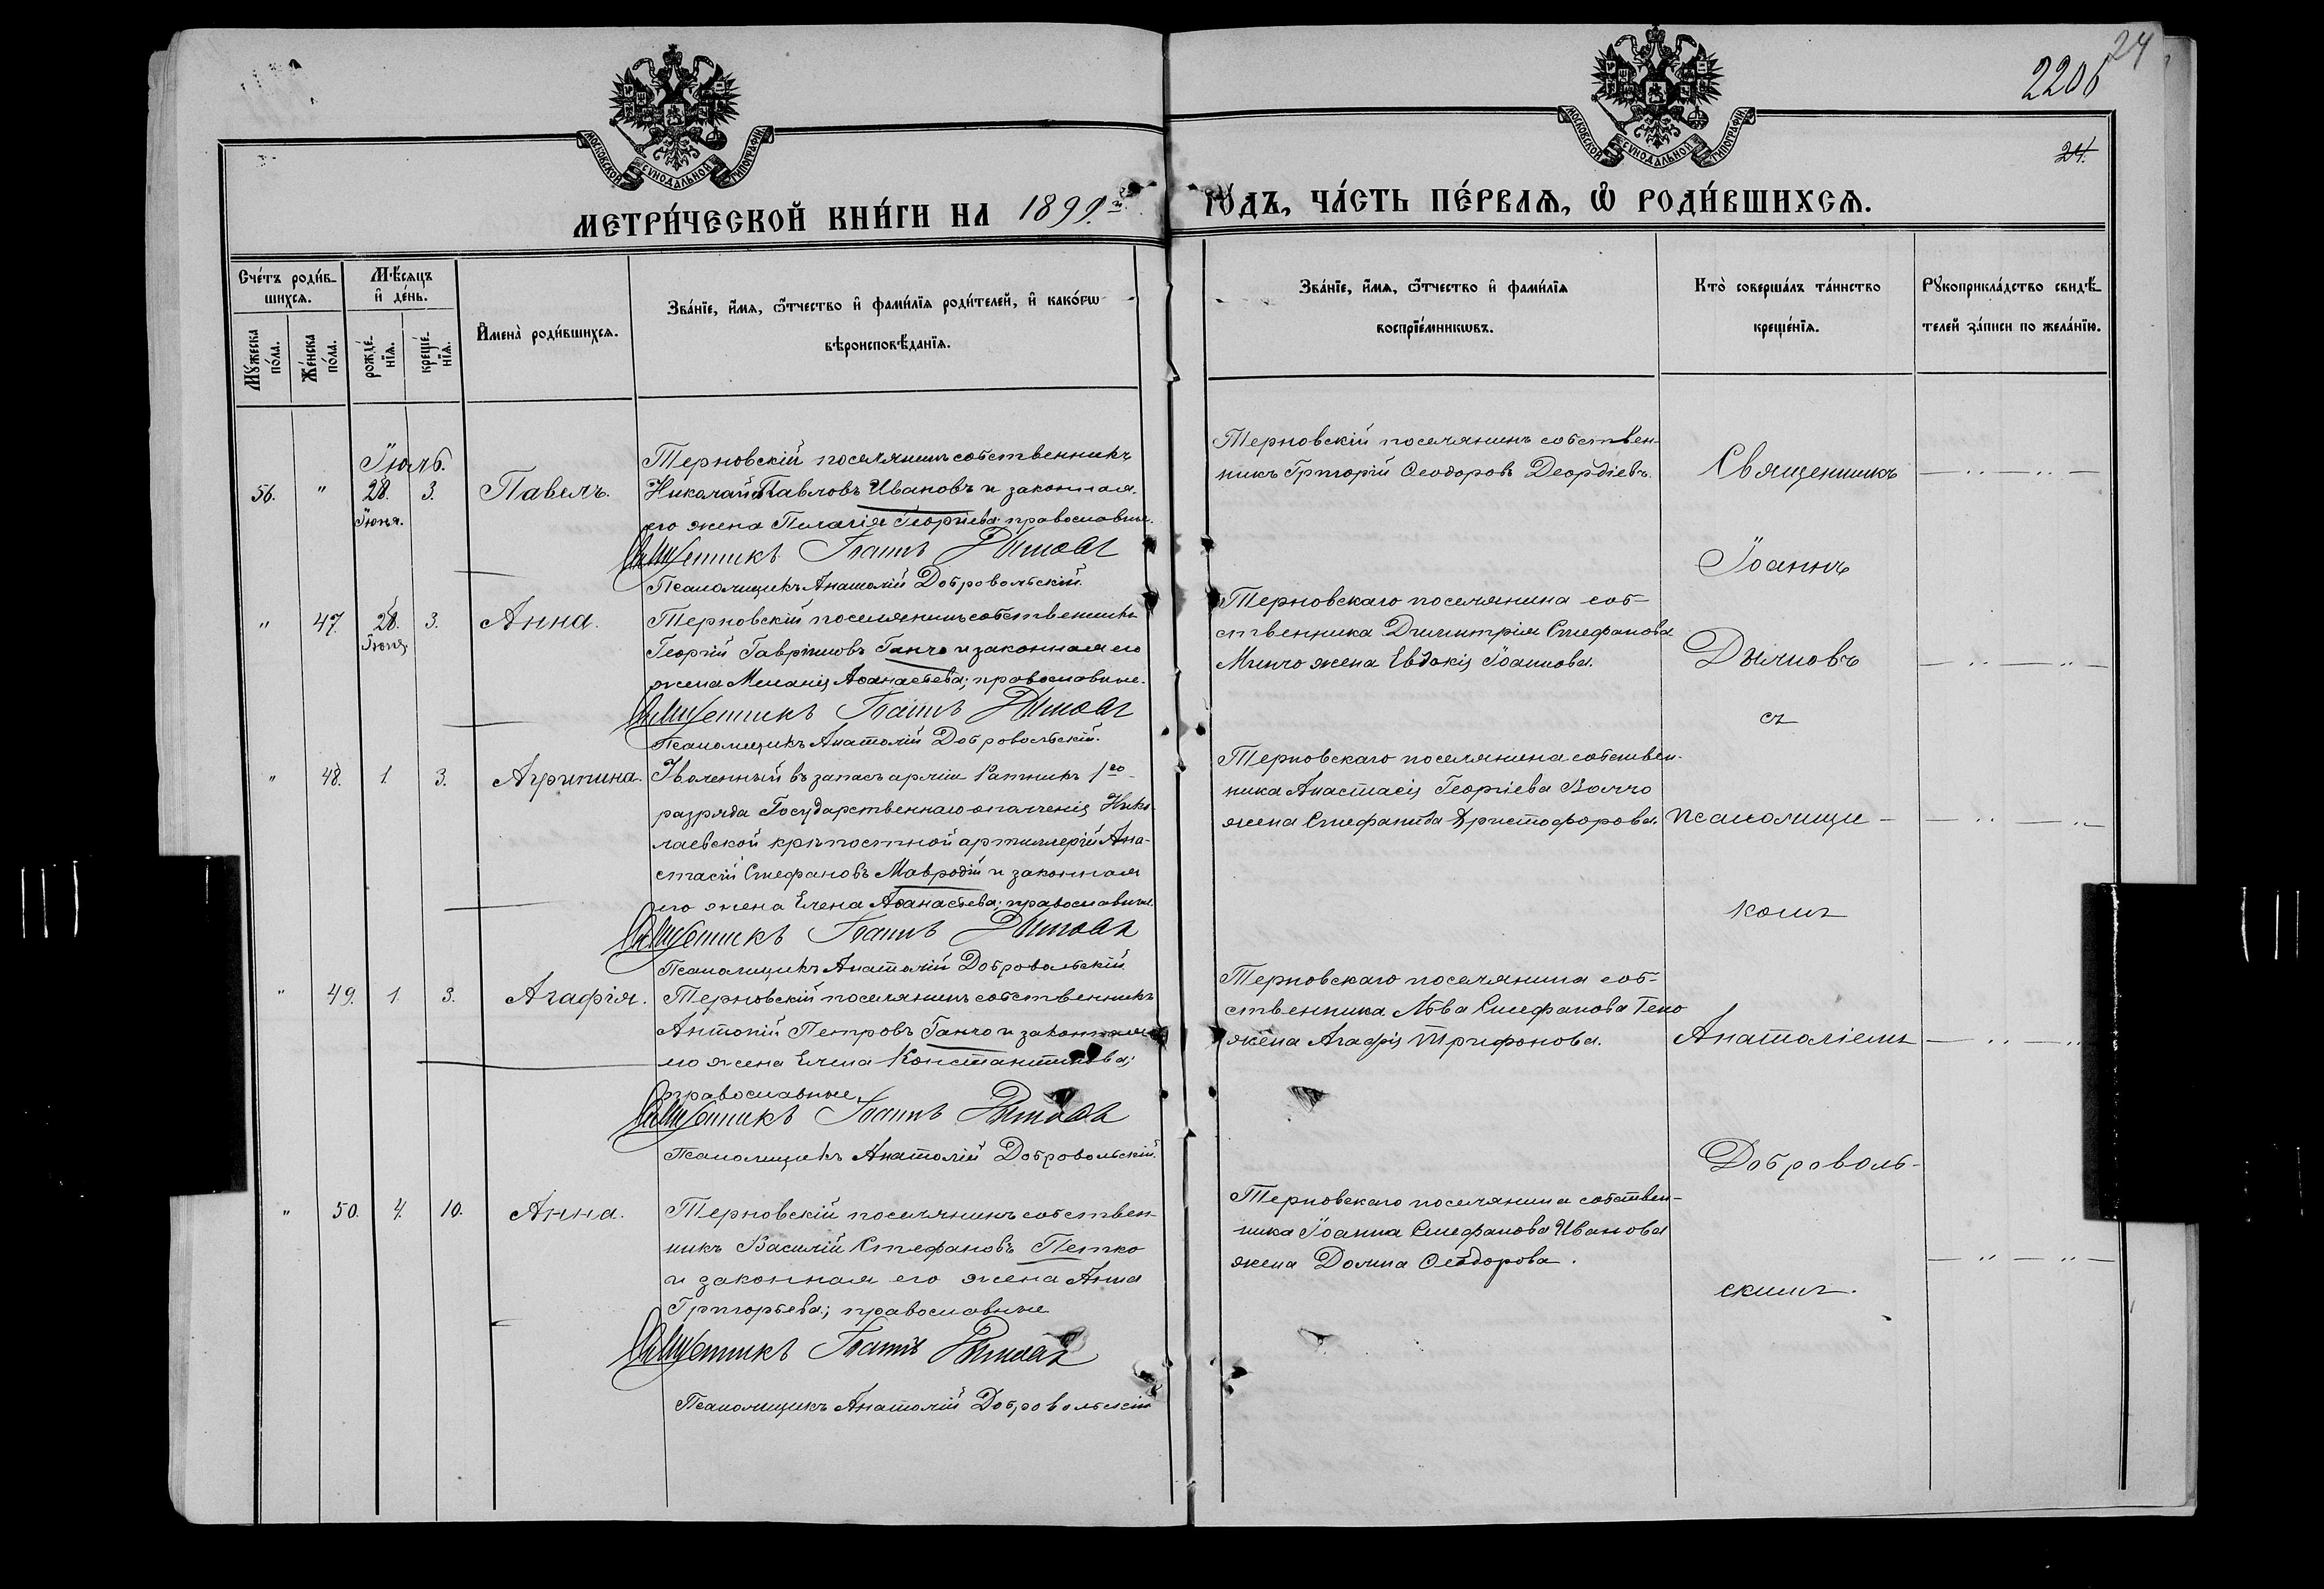 2206
24
24.
МОСКОВСКОЙ СѴНОДАЛЬНОЙ ТИПОГРАФІИ
МОСКОВСКОЙ СѴНОДАЛЬНОЙ ТИПОГРАФІИ
МЕТРИ́ЧЕСКОЙ КНИ́ГИ НА 1899.й ГОДЪ, ЧА́СТЬ ПЕ́РВАѦ, Ѡ РОДИ́ВШИХСѦ.
Сче́тъ роди́в-
шихсѧ.
Мѣ́сѧцъ
и҆ де́нь.
Мꙋ́жеска
по́ла.
Же́нска
по́ла.
рожде́-
нїѧ.
креще́-
нїѧ.
И҆мена̀ роди́вшихсѧ.
Зва́нїе, и҆́мѧ, ѻ҆́тчество и҆ фами́лїѧ роди́телей, и҆ како́гѡ
вѣроисповѣ́данїѧ.
Зва́нїе, и҆́мѧ, ѻ҆́тчество и҆ фами́лїѧ
воспрїе́мникѡвъ.
Кто̀ соверша́лъ та́инство
креще́нїѧ.
Рꙋкоприкла́дство свидѣ́-
телей за́писи по жела́нїю.
Іюль.
56. " 28. 3. Павелъ.
Іюня.
Терновскій поселянинъ собственникъ
Николай Павловъ Ивановъ и законная
его жена Пелагія Георгіева; православные.
Священникъ Іоаннъ Дымовъ
Псаломщикъ Анатолій Добровольскій.
Терновскій поселянинъ собствен-
никъ Григорій Ѳеодоровъ Деордіевъ.
" 47. 28. 3. Анна.
Іюня
Терновскій поселянинъ собственникъ
Георгій Гавріиловъ Ганчо и законная его
жена Меланія Аѳанасьева; православные.
Священникъ Іоаннъ Дымовъ
Псаломщикъ Анатолій Добровольскій.
Терновскаго поселянина соб-
ственника Димитрія Стефанова
Минчо жена Евдокія Іоаннова.
" 48. 1. 3. Агрипина.
Уволенный въ запасъ арміи Ратникъ 1го
разряда Государственнаго ополченія Нико-
лаевской крѣпостной артиллеріи Ана-
стасій Стефановъ Мавродій и законная
его жена Елена Аѳанасьева; православные.
Священникъ Іоаннъ Дымовъ
Псаломщикъ Анатолій Добровольскій.
Терновскаго поселянина собствен-
ника Анастасія Георгіева Волчо
жена Стефанида Христофорова.
" 49. 1. 3. Агафія.
Терновскій поселянинъ собственникъ
Антоній Петровъ Ганчо и законная
его жена Елена Константинова;
православные.
Священникъ Іоаннъ Дымовъ
Псаломщикъ Анатолій Добровольскій.
Терновскаго поселянина соб-
ственника Льва Стефанова Геко
жена Агафія Трифонова.
" 50. 4. 10. Анна.
Терновскій поселянинъ собствен-
никъ Василій Стефановъ Петко
и законная его жена Анна
Григорьева; православные
Священникъ Іоаннъ Дымовъ
Псаломщикъ Анатолій Добровольскій
Терновскаго поселянина собствен-
ника Іоанна Стефанова Иванова
жена Домна Ѳеодорова.
Священникъ
Іоаннъ
Дымовъ
съ
псаломщи-
комъ
Анатоліемъ
Доброволь-
скимъ.